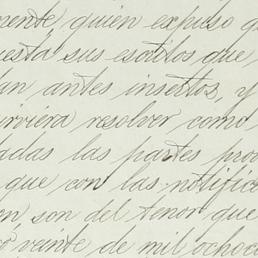 mente quien expuso q
uesta sus escritos que
dan antes insertos, y
irviera resolver como
adas las partes pro
que con las notific
en son del tenor que
ó veinte de mil ochoc